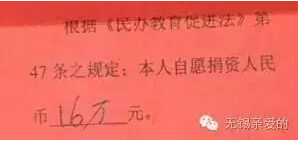 根据《民办教育促进法》第
47条之规定：本人自愿捐资人民
币 16万 元。
无锡亲爱的